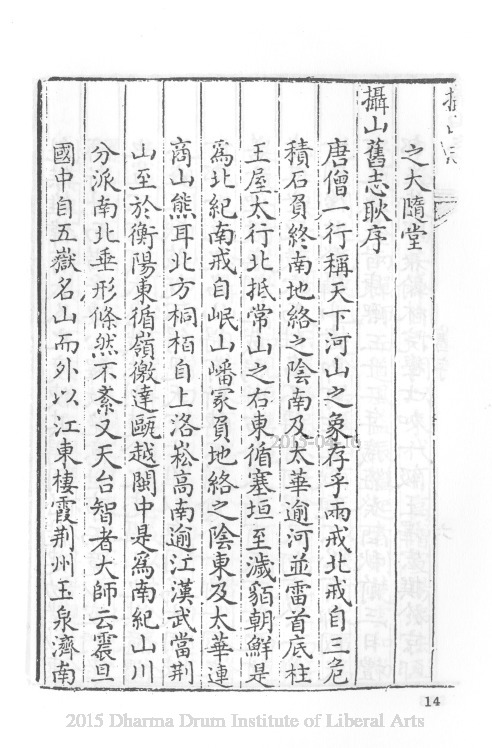 攝山志
之大隨堂
攝山舊志耿序
唐僧一行稱天下河山之象存乎兩戒北戒自三危
積石負終南地絡之陰南及太華逾河並雷首底柱
王屋太行北抵常山之右東循塞垣至濊貊朝鮮是
爲北紀南戒自岷山嶓冢負地絡之陰東及太華連
商山熊耳北方桐栢自上洛崧高南逾江漢武當荆
山至於衡陽東循嶺徼達甌越閩中是爲南紀山川
分派南北垂形條然不紊又天台智者大師云震旦
國中自五嶽名山而外以江東棲霞荆州玉泉濟南
2015-04-16
14
2015 Dharma Drum Institute of Liberal Arts